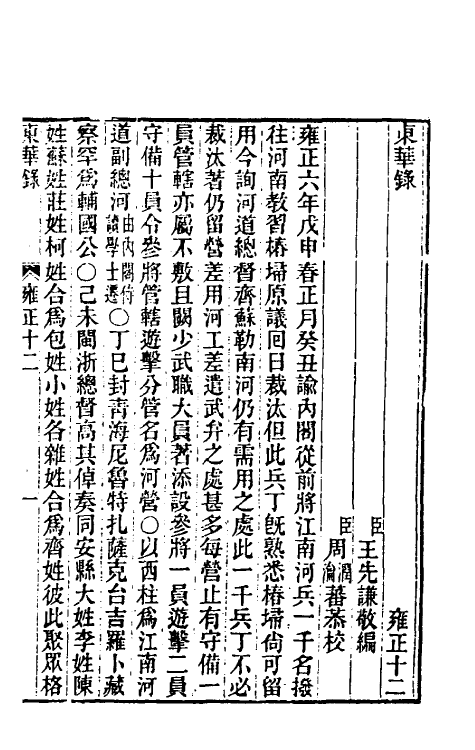 東華錄　雍正十二
臣王先謙敬編
臣周潤蕃瀹蕃恭校
雍正六年戊申春正月癸丑諭内閣從前將江南河兵一千名撥
往河南教習樁埽原議囘日裁汰但此兵丁既熟悉樁埽尚可留
用今詢河道總督齊蘇勒南河仍有需用之處此一千兵丁不必
裁汰著仍留營差用河工差遣武弁之處甚多每營止有守備一
員管轄亦屬不敷且闕少武職大員著添設參將一員遊擊二員
守備十員令參將管轄遊擊分管名爲河營〇以西柱爲江南河
道副總河由内閣侍讀學士遷〇丁巳封青海尼魯特扎薩克台吉羅卜藏
察罕爲輔國公〇己未閩浙總督高其倬奏同安縣大姓李姓陳
姓蘇姓莊姓柯姓合爲包姓小姓各雜姓合爲齊姓彼此聚眾格
東華錄　雍正十二　一